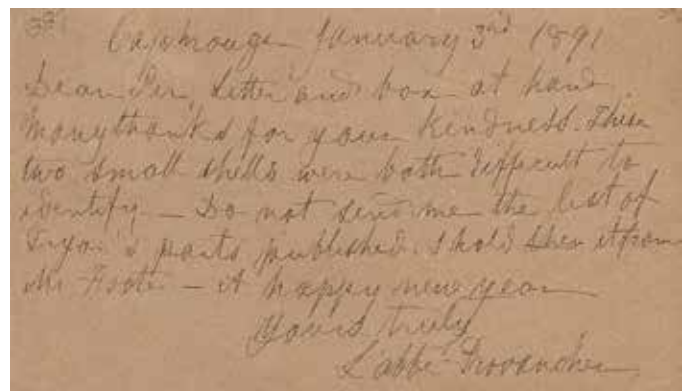 Caprouge January 3rd 1891
Dear Sir, Letter and box at hand.
Many thanks for your kindness. These
two small shells were both difficult to
identify — Do not send me the list of
Tryon's parts published. I hold it from
Mr Foote — A happy new year
Yours truly
L'abbé Provancher